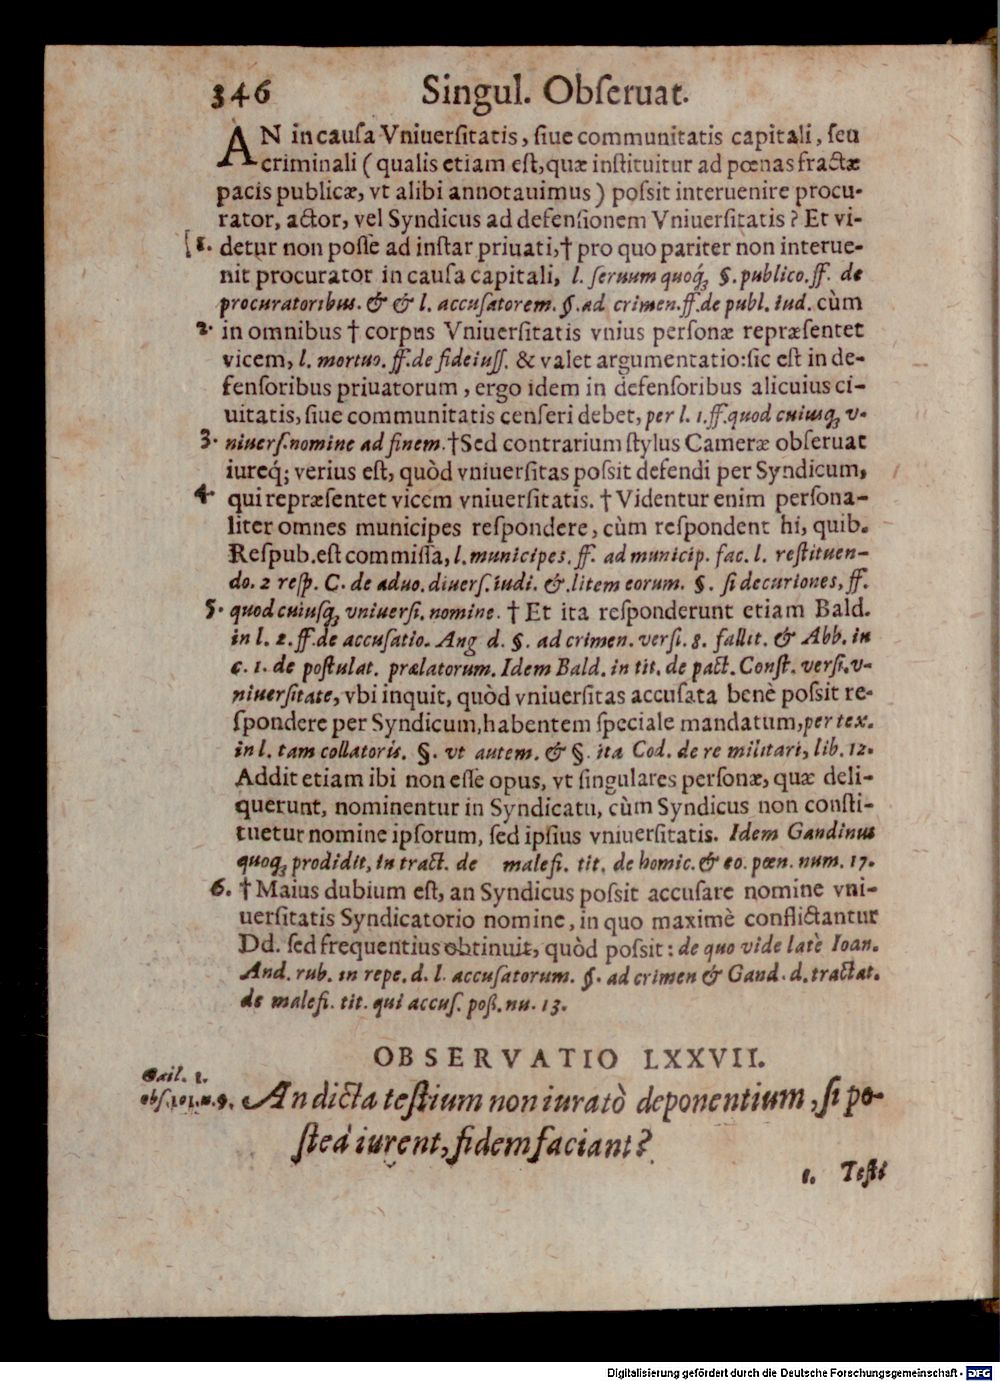 346 Singul. Obſeruat.
AN in cauſa Vniuerſitatis, ſiue communitatis capitali, ſeu
criminali (qualis etiam eſt, quæ inſtituitur ad pœnas fractæ
pacis publicæ, vt alibi annotauimus) poſsit interuenire procu-
rator, actor, vel Syndicus ad defenſionem Vniuerſitatis? Et vi-
1. detur non poſſe ad inſtar priuati, † pro quo pariter non interue-
nit procurator in cauſa capitali, l. ſeruum quoq́ꝫ §. publico. ff. de
procuratoribus. & & l. accuſatorem. §. ad crimen. ff. de publ. iud. cùm
2. in omnibus † corpus Vniuerſitatis vnius perſonæ repræſentet
vicem, l. mortuo. ff. de fideiuſſ. & valet argumentatio: ſic eſt in de-
fenſoribus priuatorum, ergo idem in defenſoribus alicuius ci-
uitatis, ſiue communitatis cenſeri debet, per l. 1. ff. quod cuiuſqꝫ v-
3. niuerſ. nomine ad finem. † Sed contrarium ſtylus Cameræ obſeruat
iureq́; verius eſt, quòd vniuerſitas poſsit defendi per Syndicum,
4. qui repræſentet vicem vniuerſitatis. † Videntur enim perſona-
liter omnes municipes reſpondere, cùm reſpondent hi, quib.
Reſpub. eſt commiſſa, l. municipes. ff. ad municip. fac. l. reſtituen-
do. 2 reſp. C. de aduo. diuerſ. iudi. & l. item eorum. §. ſi decuriones, ff.
5. quod cuiuſqꝫ vniuerſi. nomine. † Et ita reſponderunt etiam Bald.
in l. 2. ff. de accuſatio. Ang d. §. ad crimen. verſi. 8. fallit. & Abb. in
c. 1. de poſtulat. prælatorum. Idem Bald. in tit. de pact. Conſt. verſi. v-
niuerſitate, vbi inquit, quòd vniuerſitas accuſata benè poſsit re-
ſpondere per Syndicum, habentem ſpeciale mandatum, per tex.
in l. tam collatoris. §. vt autem. & §. ita Cod. de re militari, lib. 12.
Addit etiam ibi non eſſe opus, vt ſingulares perſonæ, quæ deli-
querunt, nominentur in Syndicatu, cùm Syndicus non conſti-
tuetur nomine ipſorum, ſed ipſius vniuerſitatis. Idem Gandinus
quoqꝫ prodidit, in tract. de malefi. tit. de homic. & eo. pœn. num. 17.
6. † Maius dubium eſt, an Syndicus poſsit accuſare nomine vni-
uerſitatis Syndicatorio nomine, in quo maximè conflictantur
Dd. ſed frequentius obtinuit, quòd poſsit: de quo vide latè Ioan.
And. rub. in repe. d. l. accuſatorum. §. ad crimen & Gand. d. tractat.
de malefi. tit. qui accuſ. poß. nu. 13.
OBSERVATIO LXXVII.
Gail. 1.
obſ. 101. n. 9. An dicta teſtium non iuratò deponentium, ſi po-
ſteà iurent, fidem faciant?
1. Teſti
Digitalisierung gefördert durch die Deutsche Forschungsgemeinschaft - DFG